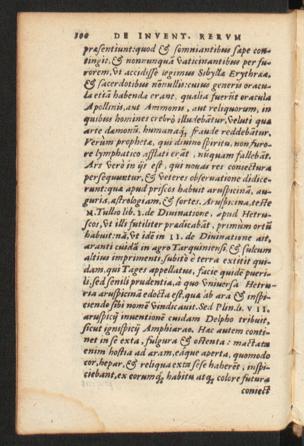 100 DE INVENT. RERVM
præsentiunt: quod & somniantibus sæpe con-
tingit, & nonnunquã vaticinantibus per fu-
rorem, ut accidisse legimus Sibyllæ Erythrææ,
& sacerdotibus nõnullis: cuius generis oracu-
la etiã habenda erant, qualia fuerũt oracula
Apollinis, aut Ammonis, aut reliquorum, in
quibus homines crebrò illudebãtur, velutì quæ
arte dæmonũ, humanaq́; fraude reddebãtur.
Verùm prophetæ, qui diuino spiritu, non furo-
re lymphatico afflati erãt, nusquam fallebãt.
Ars verò in ijs est, qui nouas res coniectura
persequuntur, & veteres obseruatione didice-
runt: quæ apud priscos habuit aruspicinã, au-
guria, astrologiam, & sortes. Aruspicina, teste
M. Tullio lib. 2. de Diuinatione, apud Hetru-
scos, ut illi futiliter prædicabãt, primum ortũ
habuit: nã, ut idẽ in II. de Diuinatione ait,
aranti cuidã in agro Tarquiniensi, & sulcum
altius imprimenti, subitò è terra extitit qui-
dam, qui Tages appellatus, facie quidẽ pueri-
li, sed senili prudentia, à quo vniuersa Hetru-
ria aruspicinã edocta est, quæ ab ara & inspi-
ciendo sibi nomẽ vindicauit. Sed Plin. li. VII.
aruspicij inuentionẽ cuidam Delpho tribuit,
sicut ignispicij Amphiarao. Hæc autem conti-
net in se exta, fulgura & ostenta: mactata
enim hostia ad aram, eáque aperta, quomodo
cor, hepar, & reliqua exta sese haberẽt, inspi-
ciebant, ex eorumq́; habitu atq́; colore futura
coniect